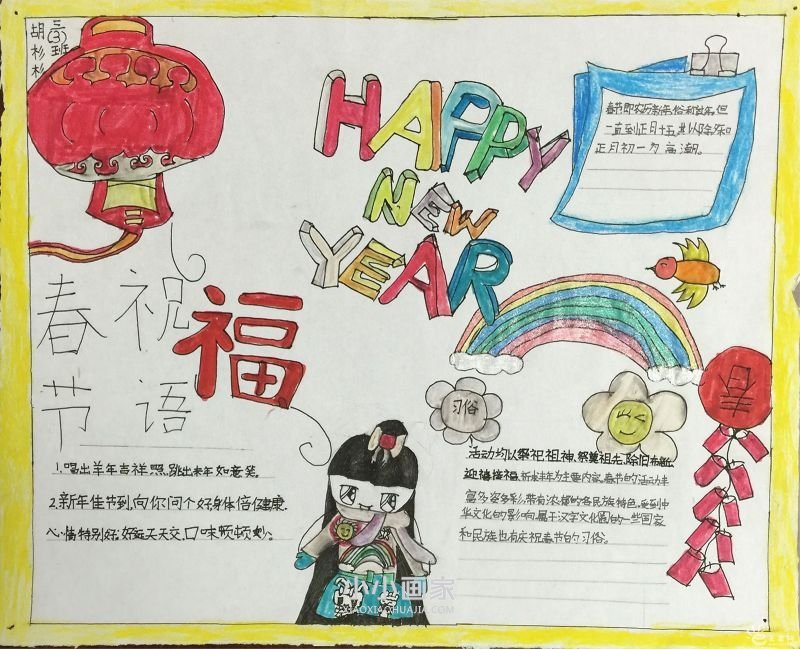 三(3)班
胡杉杉
HAPPY
NEW
YEAR
春节即农历新年,俗称过年,但
一直到正月十五,其以除夕和
正月初一为高潮。
春节
祝语
福
春
习俗
1.唱出羊年吉祥照,跳出来年如意笑。
2.新年佳节到,向你问个好,身体倍健康,
心情特别好;好运天天交,口味顿顿妙。
活动均以祭祀祖神,祭奠祖先,除旧布新,
迎禧接福,祈求丰年为主要内容。春节的活动丰
富多姿多彩,带有浓郁的各民族特色。受到中
华文化的影响,属于汉字文化圈的一些国家
和民族也有庆祝春节的习俗。
小小画家
XIAOXIAOHUAJIA.COM